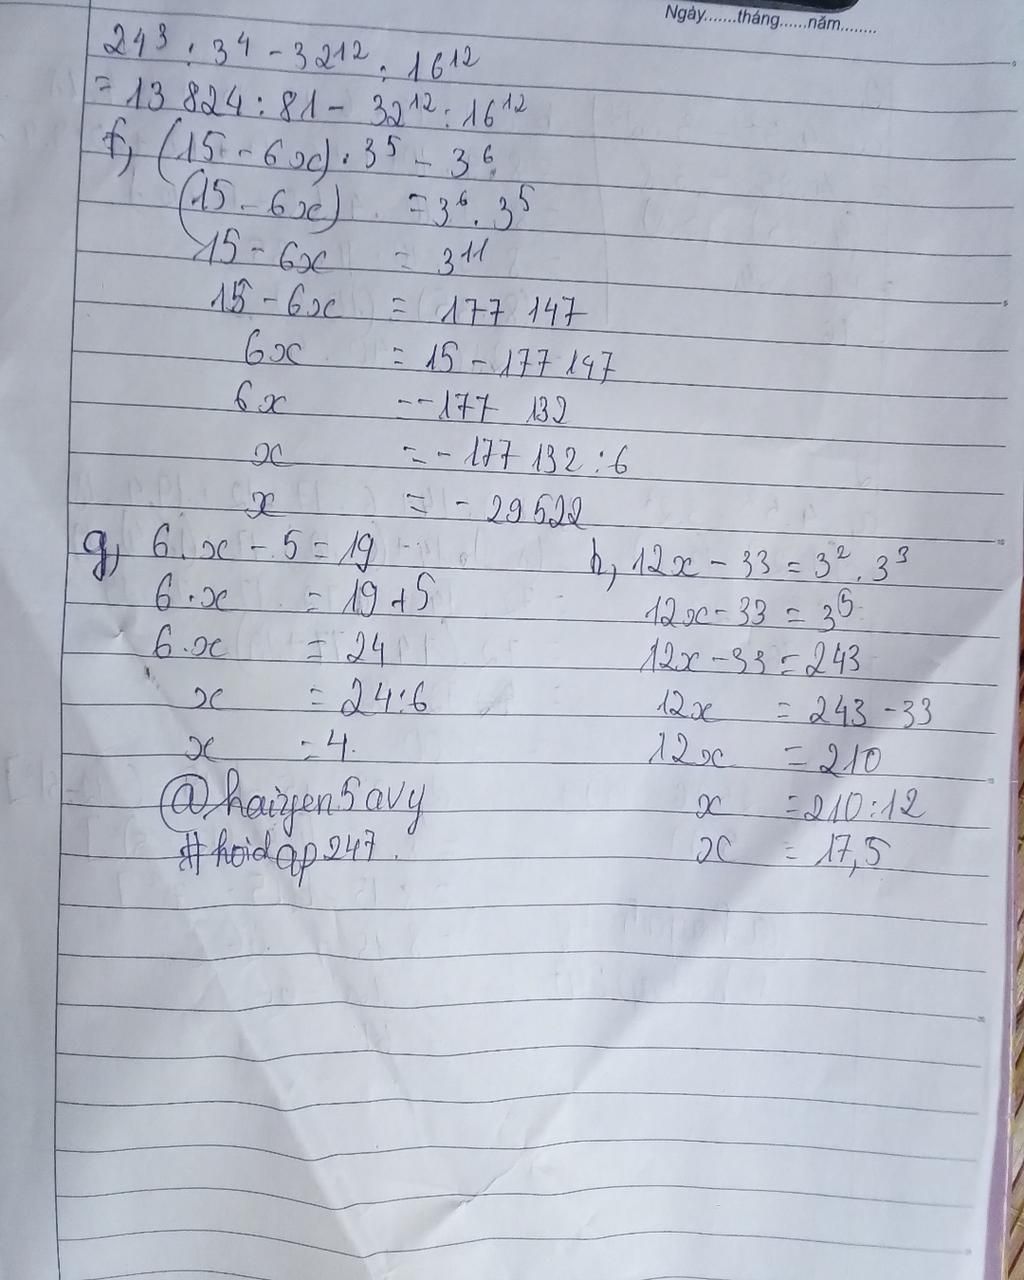 Ngày.......tháng......năm........
24³ : 3⁴ - 32¹² : 16¹²
= 13 824 : 81 - 32¹² : 16¹²
f, (15 - 6x) . 3⁵ = 3⁶
(15 - 6x) = 3⁶ . 3⁵
15 - 6x = 3¹¹
15 - 6x = 177 147
6x = 15 - 177 147
6x = -177 132
x = - 177 132 : 6
x = - 29 522
g, 6 . x - 5 = 19
6 . x = 19 + 5
6 . x = 24
x = 24 : 6
x = 4.
@haiyen5avy
#hoidap247.
h, 12x - 33 = 3² . 3³
12x - 33 = 3⁵
12x - 33 = 243
12x = 243 - 33
12x = 210
x = 210 : 12
x = 17,5